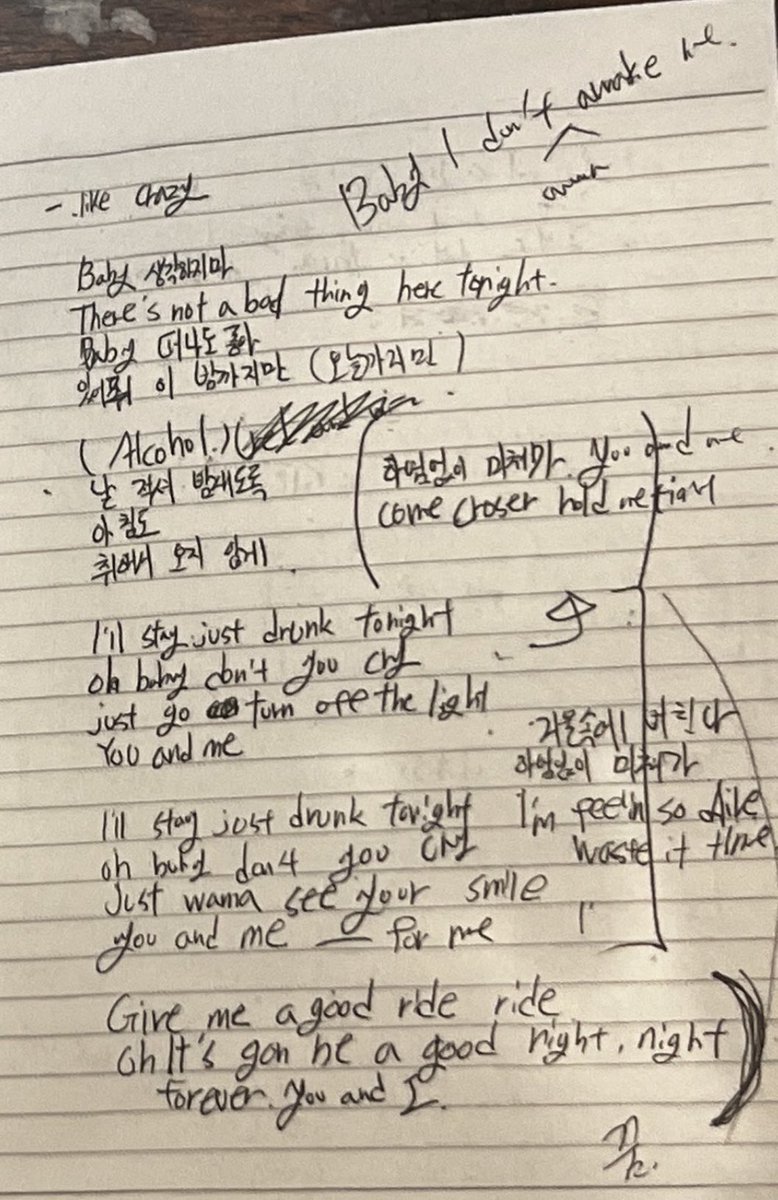 Baby I don't awake me.
- like crazy
Baby 생각하지마
There's not a bad thing here tonight.
Baby 떠나도 좋아
있어줘 이 밤까지만 (오늘까지만)
(Alcohol.)
날 적셔 밤새도록
아침도
취해서 오지 않게
하염없이 미쳐가. you and me
come croser hold me
I'll stay just drunk tonight
oh baby don't you cry
just go turn off the light
You and me
거울속에 비친 나
하염없이 미쳐가
I'll stay just drunk tonight
oh baby don't you cry
Just wanna see your smile
you and me — for me
I'm feel'n so alive
waste it time
Give me a good ride ride
oh It's gon be a good night, night
forever. you and I.
꿈.